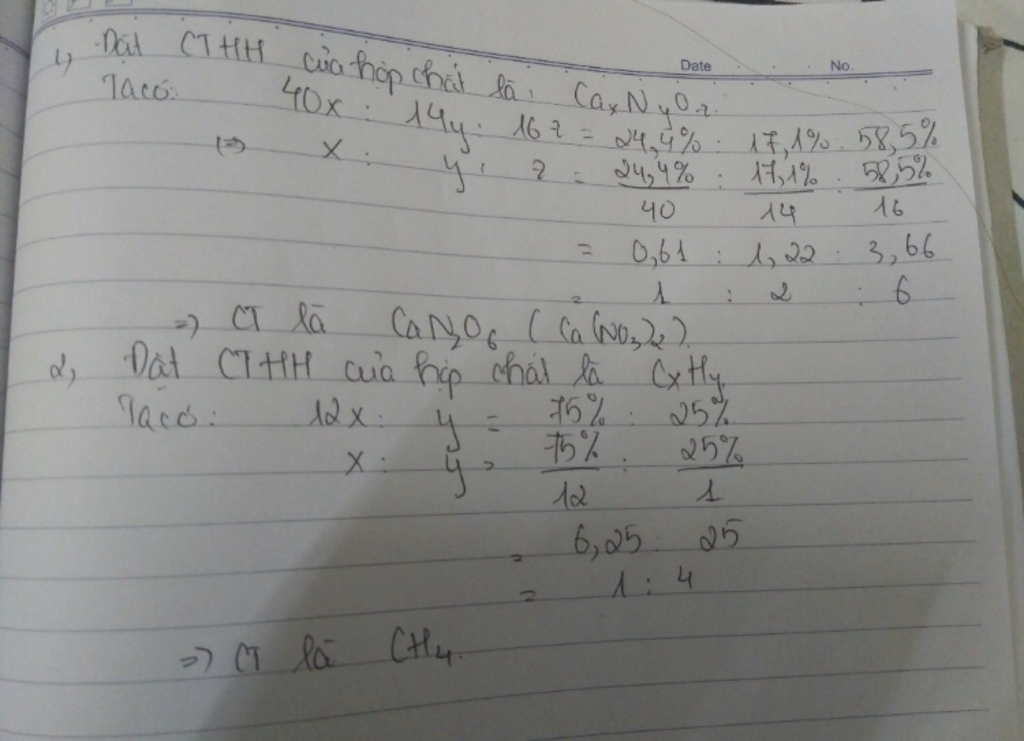 Date No.
1, Đặt CTHH của hợp chất là: CaxNyOz.
Ta có: 40x : 14y : 16z = 24,4% : 17,1% : 58,5%
(=) x : y : z = 24,4%/40 : 17,1%/14 : 58,5%/16
= 0,61 : 1,22 : 3,66
= 1 : 2 : 6
=) CT là CaN2O6 (Ca(NO3)2).
2, Đặt CTHH của hợp chất là CxHy
Ta có: 12x : y = 75% : 25%
x : y = 75%/12 : 25%/1
= 6,25 : 25
= 1 : 4
=) CT là CH4.